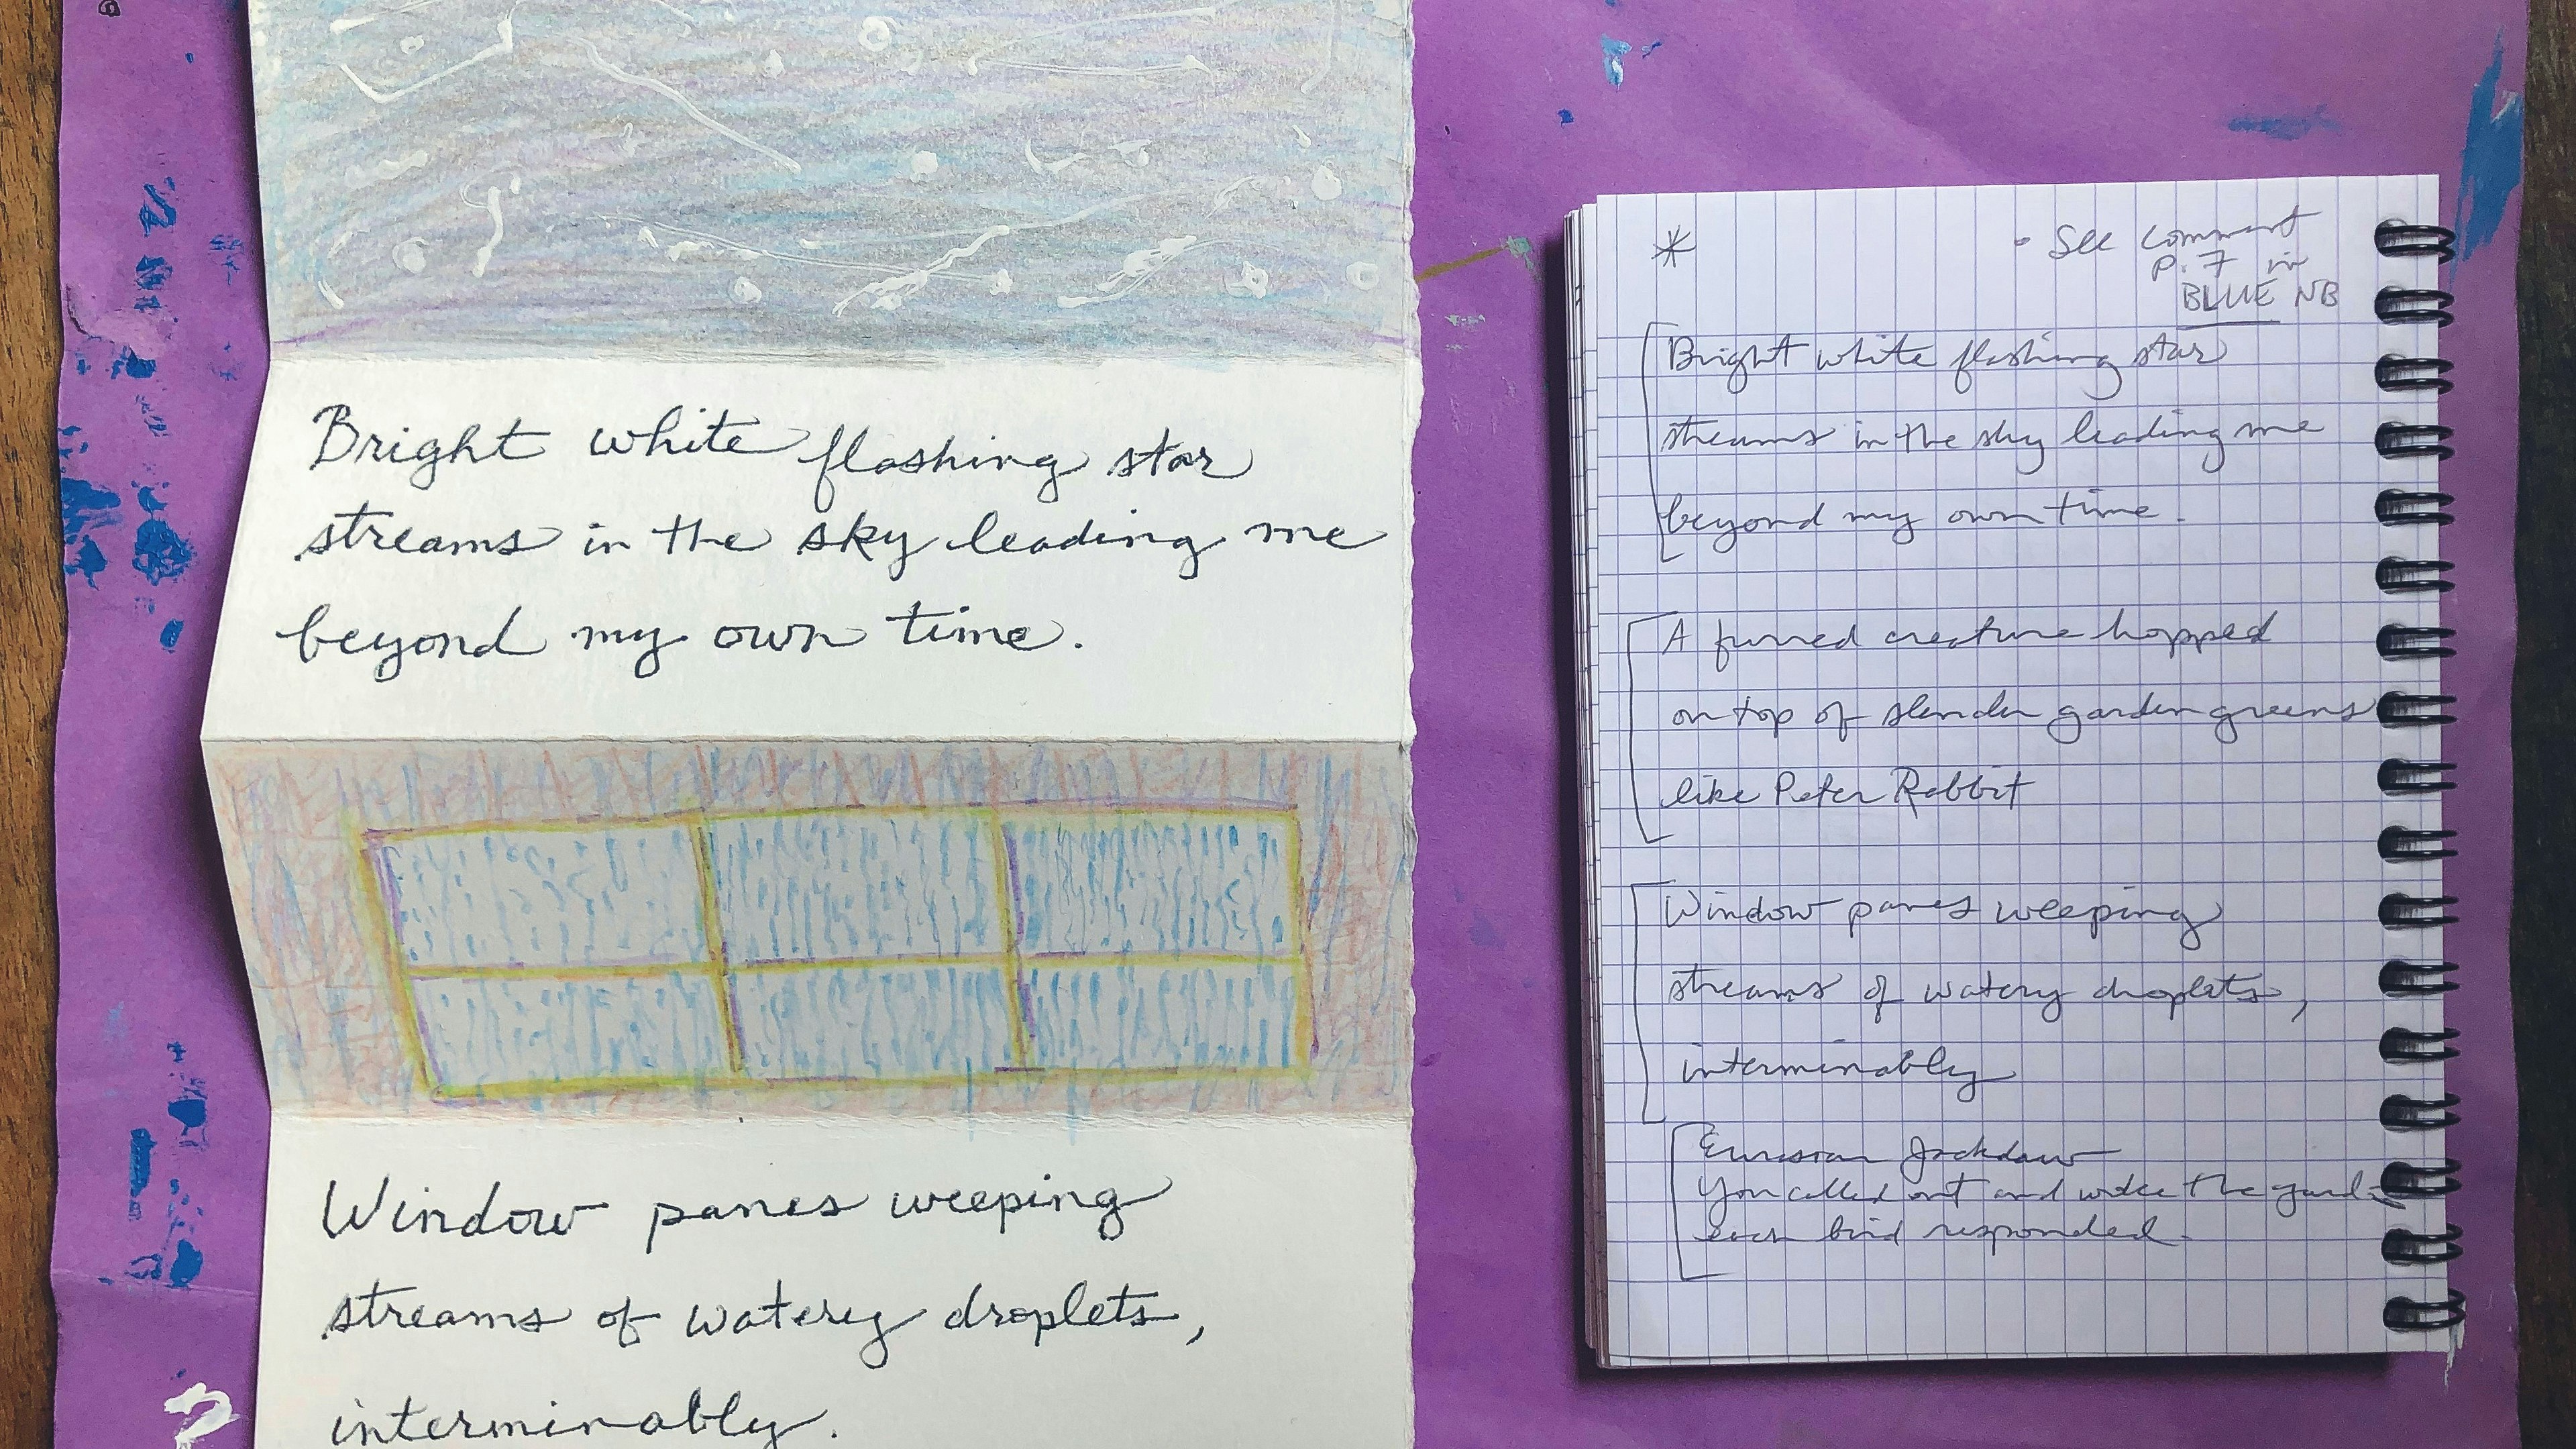 Bright white flashing star
streams in the sky leading me
beyond my own time.
Window panes weeping
streams of watery droplets,
interminably.
*
- See comment
p. 7 in
BLUE NB
Bright white flashing star
streams in the sky leading me
beyond my own time.
A furred creature hopped
on top of slender garden greens
like Peter Rabbit
Window panes weeping
streams of watery droplets,
interminably
Eurasian Jackdaw
You called out and woke the
each bird responded.